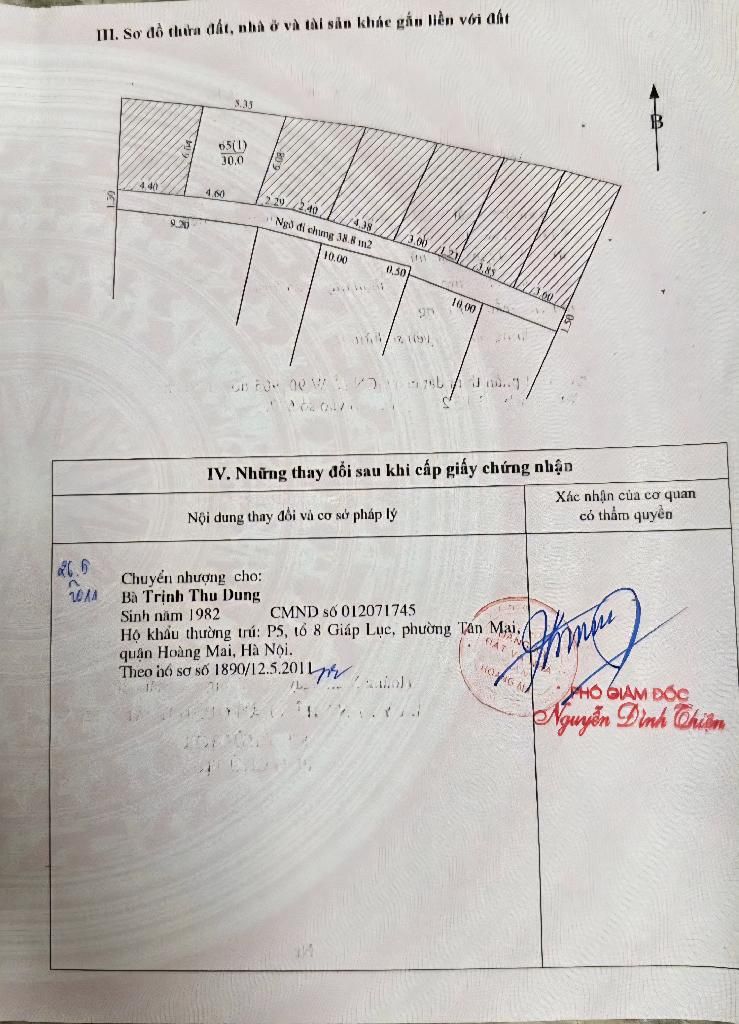 III. Sơ đồ thửa đất, nhà ở và tài sản khác gắn liền với đất
B
8.35
6.04
65(1)
30.0
6.08
4.40
4.60
2.29
2.40
4.38
3.00
1.21
3.85
3.60
1.50
1.50
9.20
Ngõ đi chung 38.8 m2
10.00
0.50
10.00
IV. Những thay đổi sau khi cấp giấy chứng nhận
Nội dung thay đổi và cơ sở pháp lý
Xác nhận của cơ quan
có thẩm quyền
26.5
2011
Chuyển nhượng cho:
Bà Trịnh Thu Dung
Sinh năm 1982 CMND số 012071745
Hộ khẩu thường trú: P5, tổ 8 Giáp Lục, phường Tân Mai,
quận Hoàng Mai, Hà Nội.
Theo hồ sơ số 1890/12.5.2011
PHÓ GIÁM ĐỐC
Nguyễn Đình Thiện